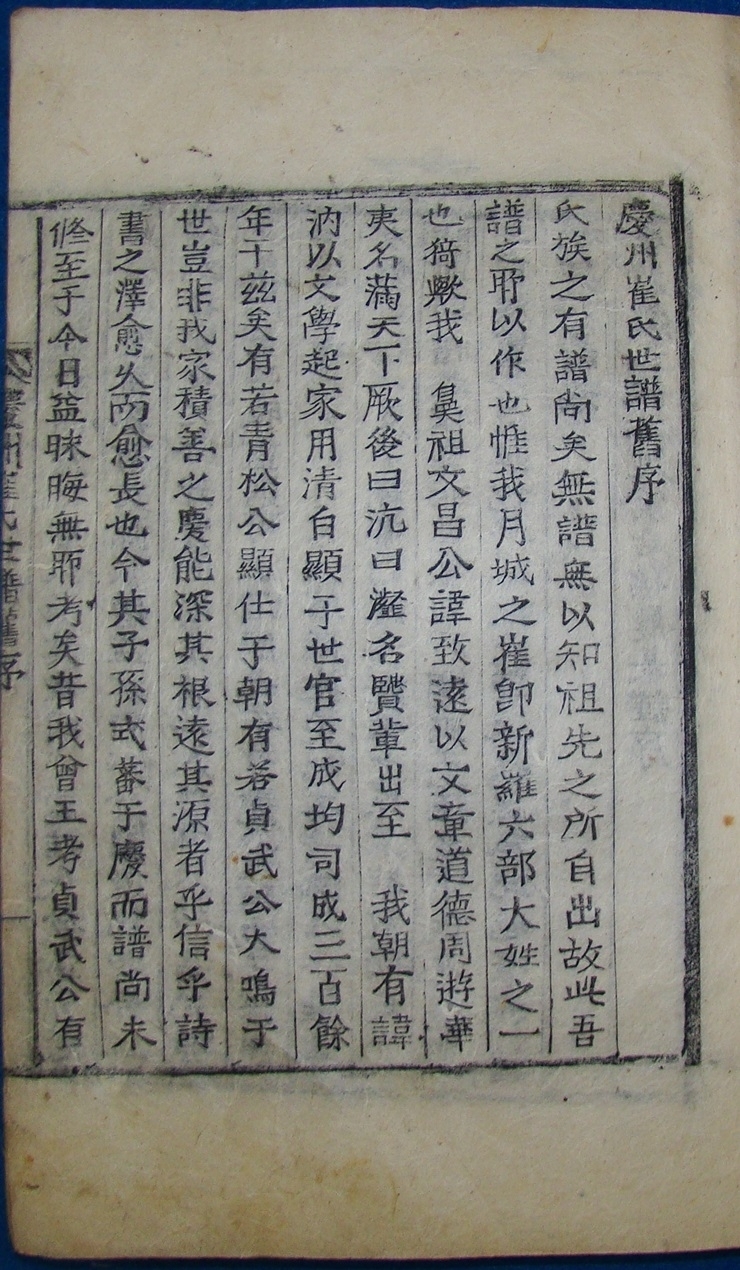 慶州崔氏世譜舊序
氏族之有譜尙矣無譜無以知祖先之所自出故此吾
譜之所以作也惟我月城之崔卽新羅六部大姓之一
也猗歟我 鼻祖文昌公諱致遠以文章道德周遊華
夷名滿天下厥後曰沆曰瀣名賢輩出至 我朝有諱
汭以文學起家用清白顯于世官至成均司成三百餘
年于玆矣有若青松公顯仕于朝有若貞武公大鳴于
世豈非我家積善之慶能深其根遠其源者乎信乎詩
書之澤愈久而愈長也今其子孫式蕃于慶而譜尙未
修至于今日益昧晦無所考矣昔我曾王考貞武公有
慶州崔氏世譜舊序